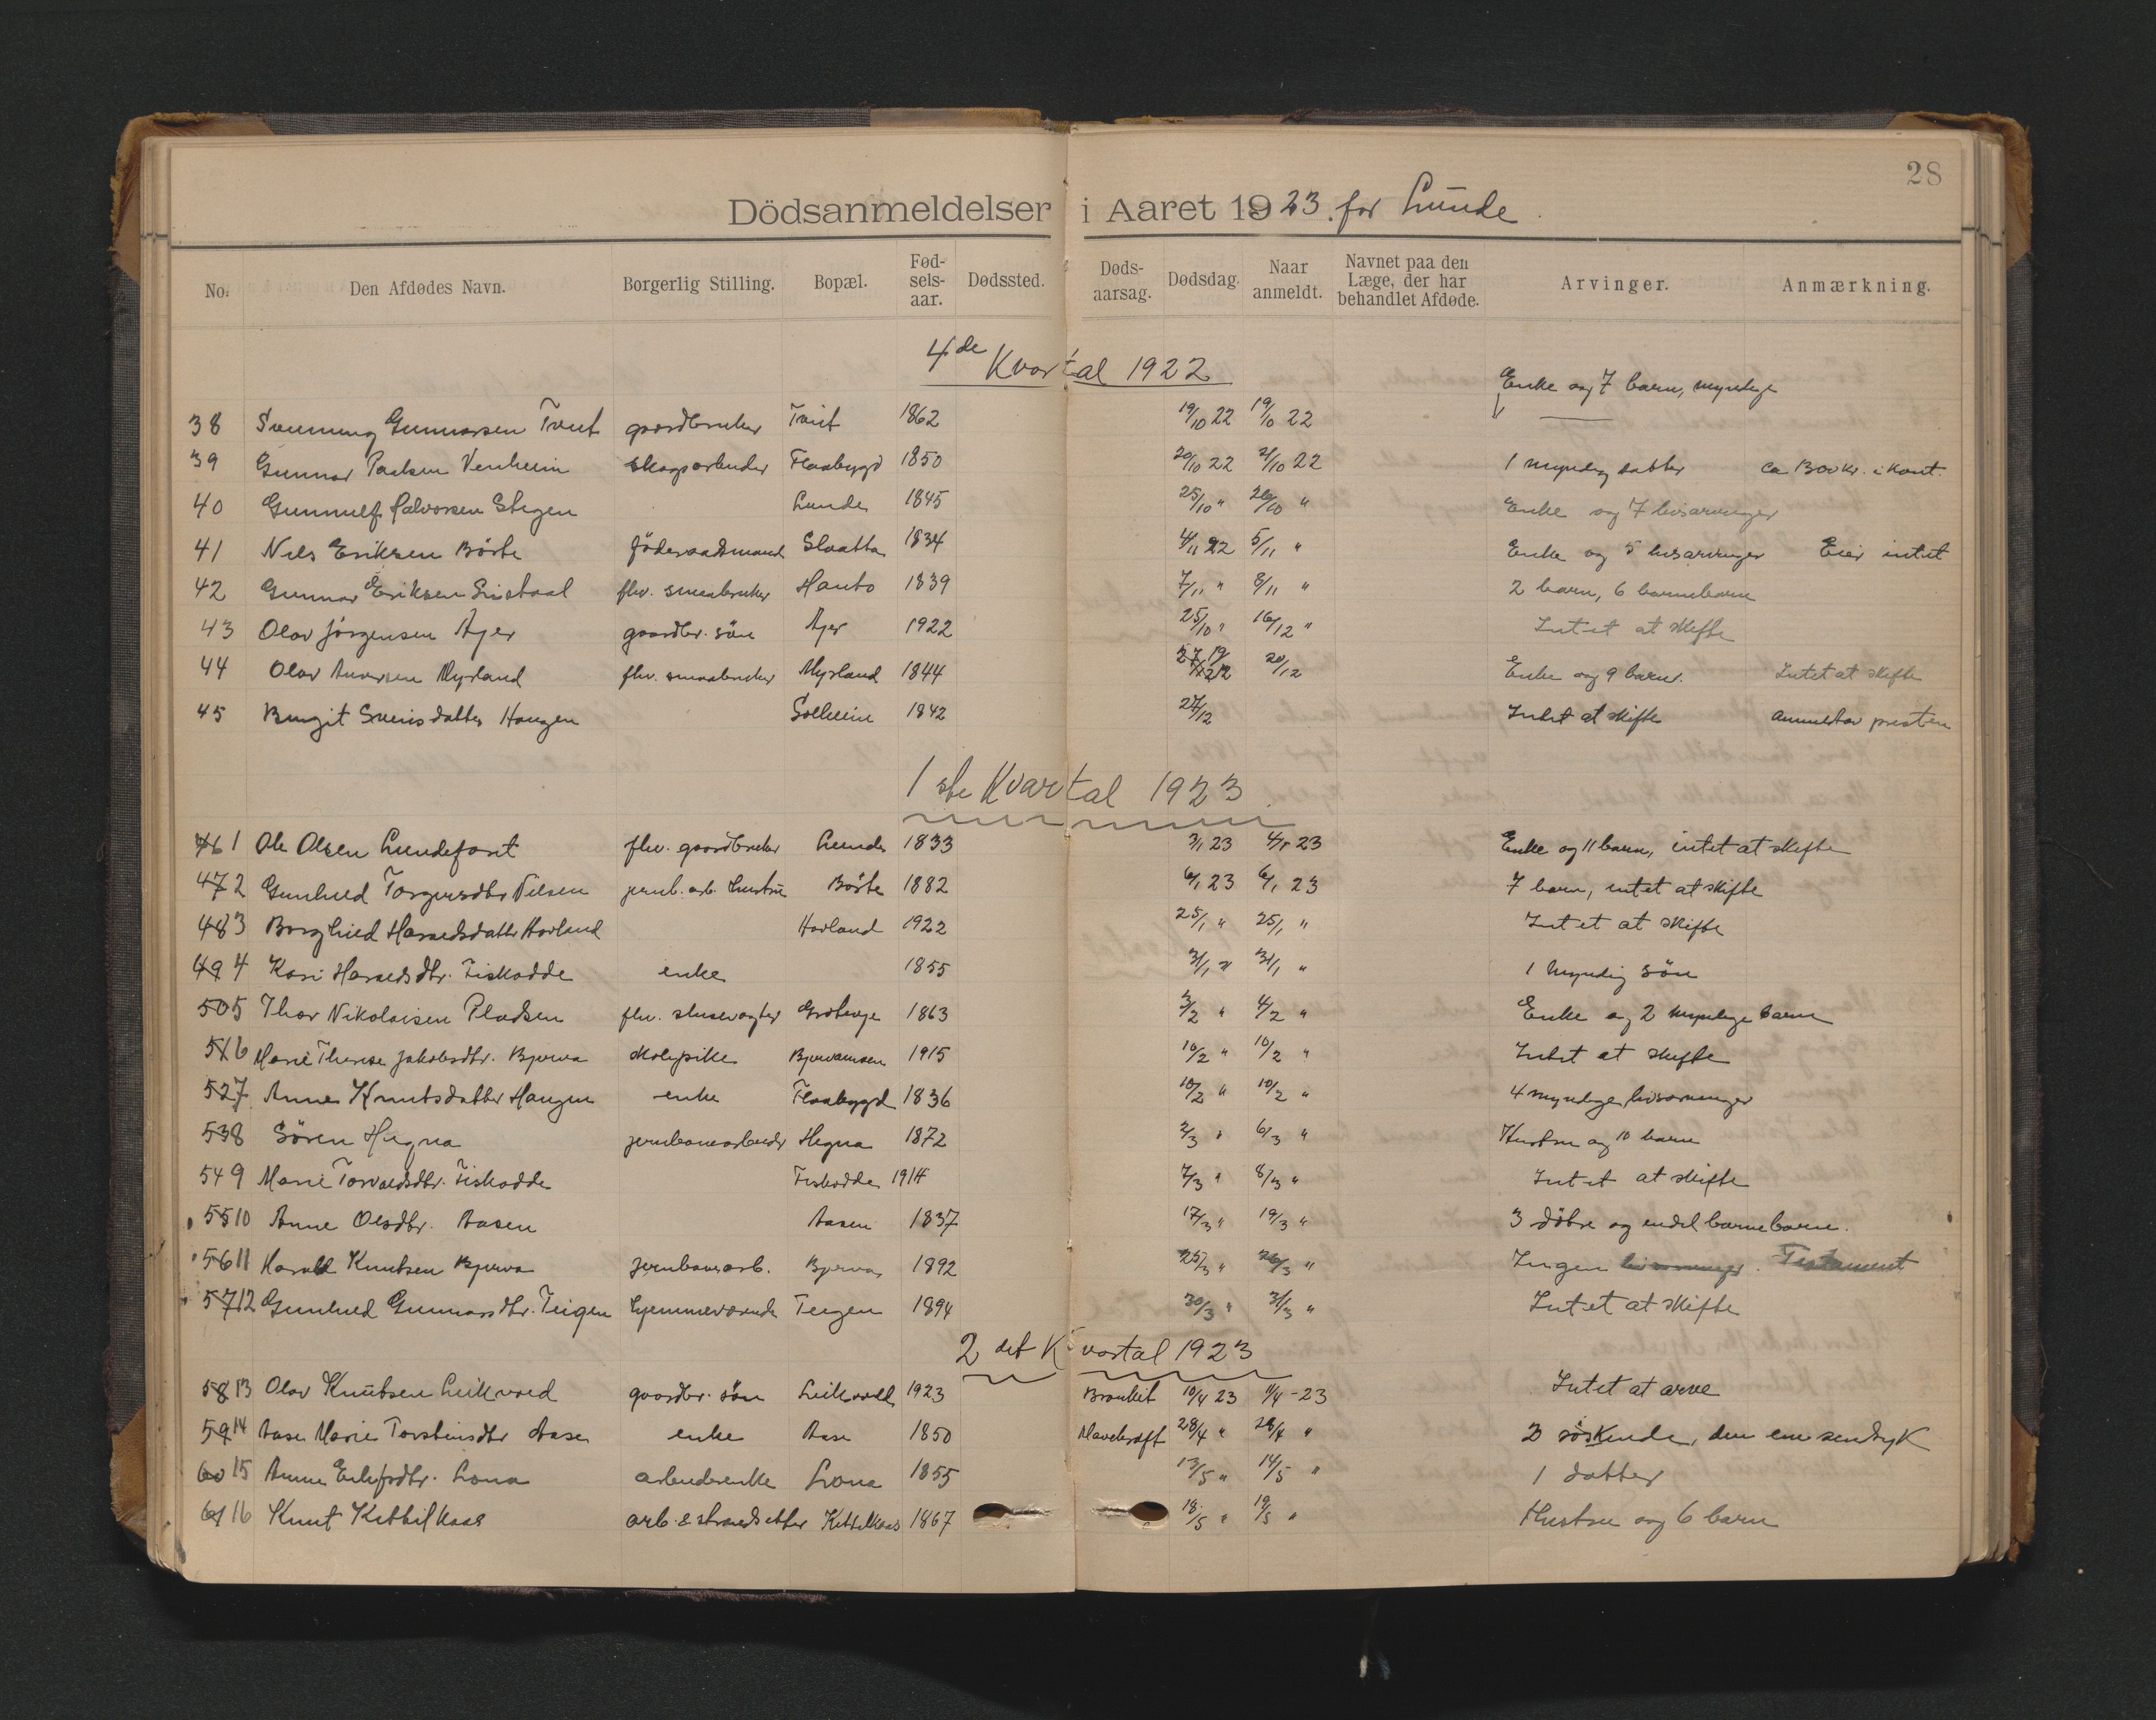 28
Dödsanmeldelser i Aaret 1923. for Lunde
No. Den Afdødes Navn. Borgerlig Stilling. Bopæl. Fødselsaar. Dødssted. Dødsaarsag. Dødsdag. Naar anmeldt. Navnet paa den Læge, der har behandlet Afdøde. Arvinger. Anmærkning.
4de Kvartal 1922
38 Svenning Gunnarsen Tveit gaardbruker Tveit 1862 19/10 22 19/10 22 Enke og 7 barn, myndige
39 Gunnar Paulsen Venheim skogsarbeider Flaabygd 1850 20/10 22 21/10 22 1 myndig datter ca 1300 kr. i kont.
40 Gunnulf Halvorsen Stigen Lunde 1845 25/10 " 26/10 " Enke og 7 livsarvinger
41 Nils Eriksen Börte föderaadsmand Slaatta 1834 4/11 22 5/11 " Enke og 5 livsarvinger Eier intet
42 Gunnar Eriksen flv. smaabruker Hanto 1839 7/11 " 8/11 " 2 barn, 6 barnebarn
43 Olav Jörgensen Ajer gaardbr. sön Ajer 1922 25/10 " 16/12 " Intet at skifte
44 Olav Myrland flv. smaabruker Myrland 1844 20/12 Enke og 9 barn. Intet at skifte
45 Bergit Sveinsdatter Haugen Solheim 1842 27/12 Intet at skifte anmeldt av presten
1ste Kvartal 1923
46 1 Ole Olsen Lundefaret flv. gaardbruker Lunde 1833 3/1 23 4/1 23 Enke og 11 barn, intet at skifte
47 2 Gunhild Torgersdtr Nilsen jernb. arb. hustru Börte 1882 6/1 23 6/1 23 7 barn, intet at skifte
48 3 Borghild Haraldsdatter Havland Havland 1922 25/1 " 25/1 " Intet at skifte
49 4 Kari Haraldsdtr. Fiskodde enke 1855 31/1 " 31/1 " 1 myndig sön
50 5 Thor Nikolaisen Pladsen flv. slusevogter Grotevje 1863 3/2 " 4/2 " Enke og 2 myndige barn
51 6 Marie Therese Jakobsdtr. Bjerva skolepike Bjervamoen 1915 10/2 " 10/2 " Intet at skifte
52 7 Anne Knutsdatter Haugen enke Flaabygd 1836 10/2 " 10/2 " 4 myndige livsarvinger
53 8 Sören Hegna jernbanearbeider Hegna 1872 2/3 " 6/3 " Hustru og 10 barn
54 9 Marie Torvaldsdtr. Fiskodde Fiskodde 1914 7/3 " 8/3 " Intet at skifte
55 10 Anne Olsdtr. Aasen Aasen 1837 17/3 " 19/3 " 3 döbre og endel barnebarn.
56 11 Harald Knutsen Bjerva jernbanearb. Bjerva 1892 25/3 " 26/3 " Ingen livsarvinger. Testament
57 12 Gunhild Gunnarsdtr. Teigen hjemmeværende Teigen 1894 30/3 " 31/3 " Intet at skifte
2det Kvartal 1923
58 13 Olav Knutsen Leikvold gaardbr. sön Leikvold 1923 Bronkit 10/4 23 11/4 - 23 Intet at arve
59 14 Aase Marie Torsteinsdtr Aase enke Aase 1850 Mavekræft 28/4 " 28/4 " 3 söskende, den ene sendsyk
60 15 Anne Eilefsdtr. Lona arbeiderenke Lona 1855 13/5 " 14/5 " 1 datter
61 16 Knut Kittilkaas arb. & strandsitter Kittelkaas 1867 18/5 " 19/5 " Hustru og 6 barn